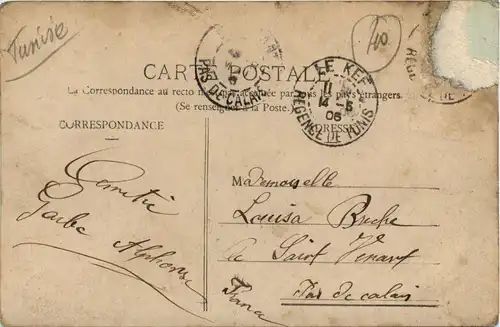 Tunisie
40
CARTE POSTALE
La Correspondance au recto n'est pas acceptée par tous les pays étrangers
(Se renseigner à la Poste.)
PAS DE CALAIS
LE KEF
11
14-5
06
REGENCE DE TUNIS
REGE
CORRESPONDANCE
ADRESSE
Amitié
Alphonse
Mademoiselle
Louisa
a Saint Venant
Pas de calais